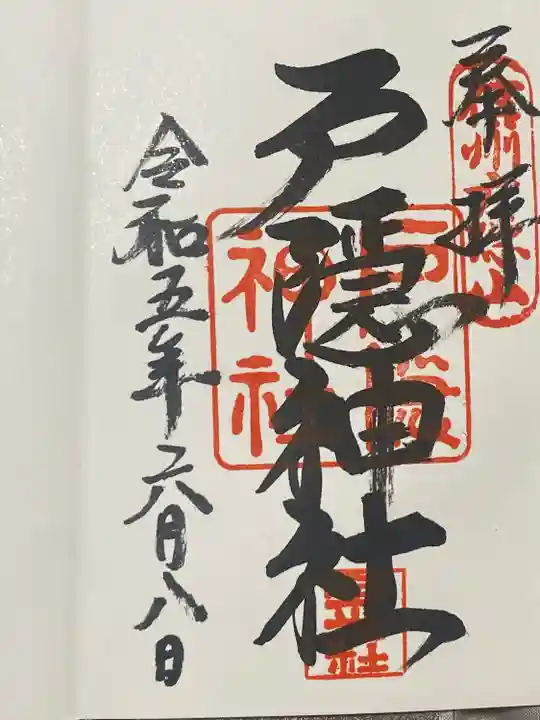 奉拝
信州戸隠山
戸隠神社
戸隠
神社
令和五年六月八日